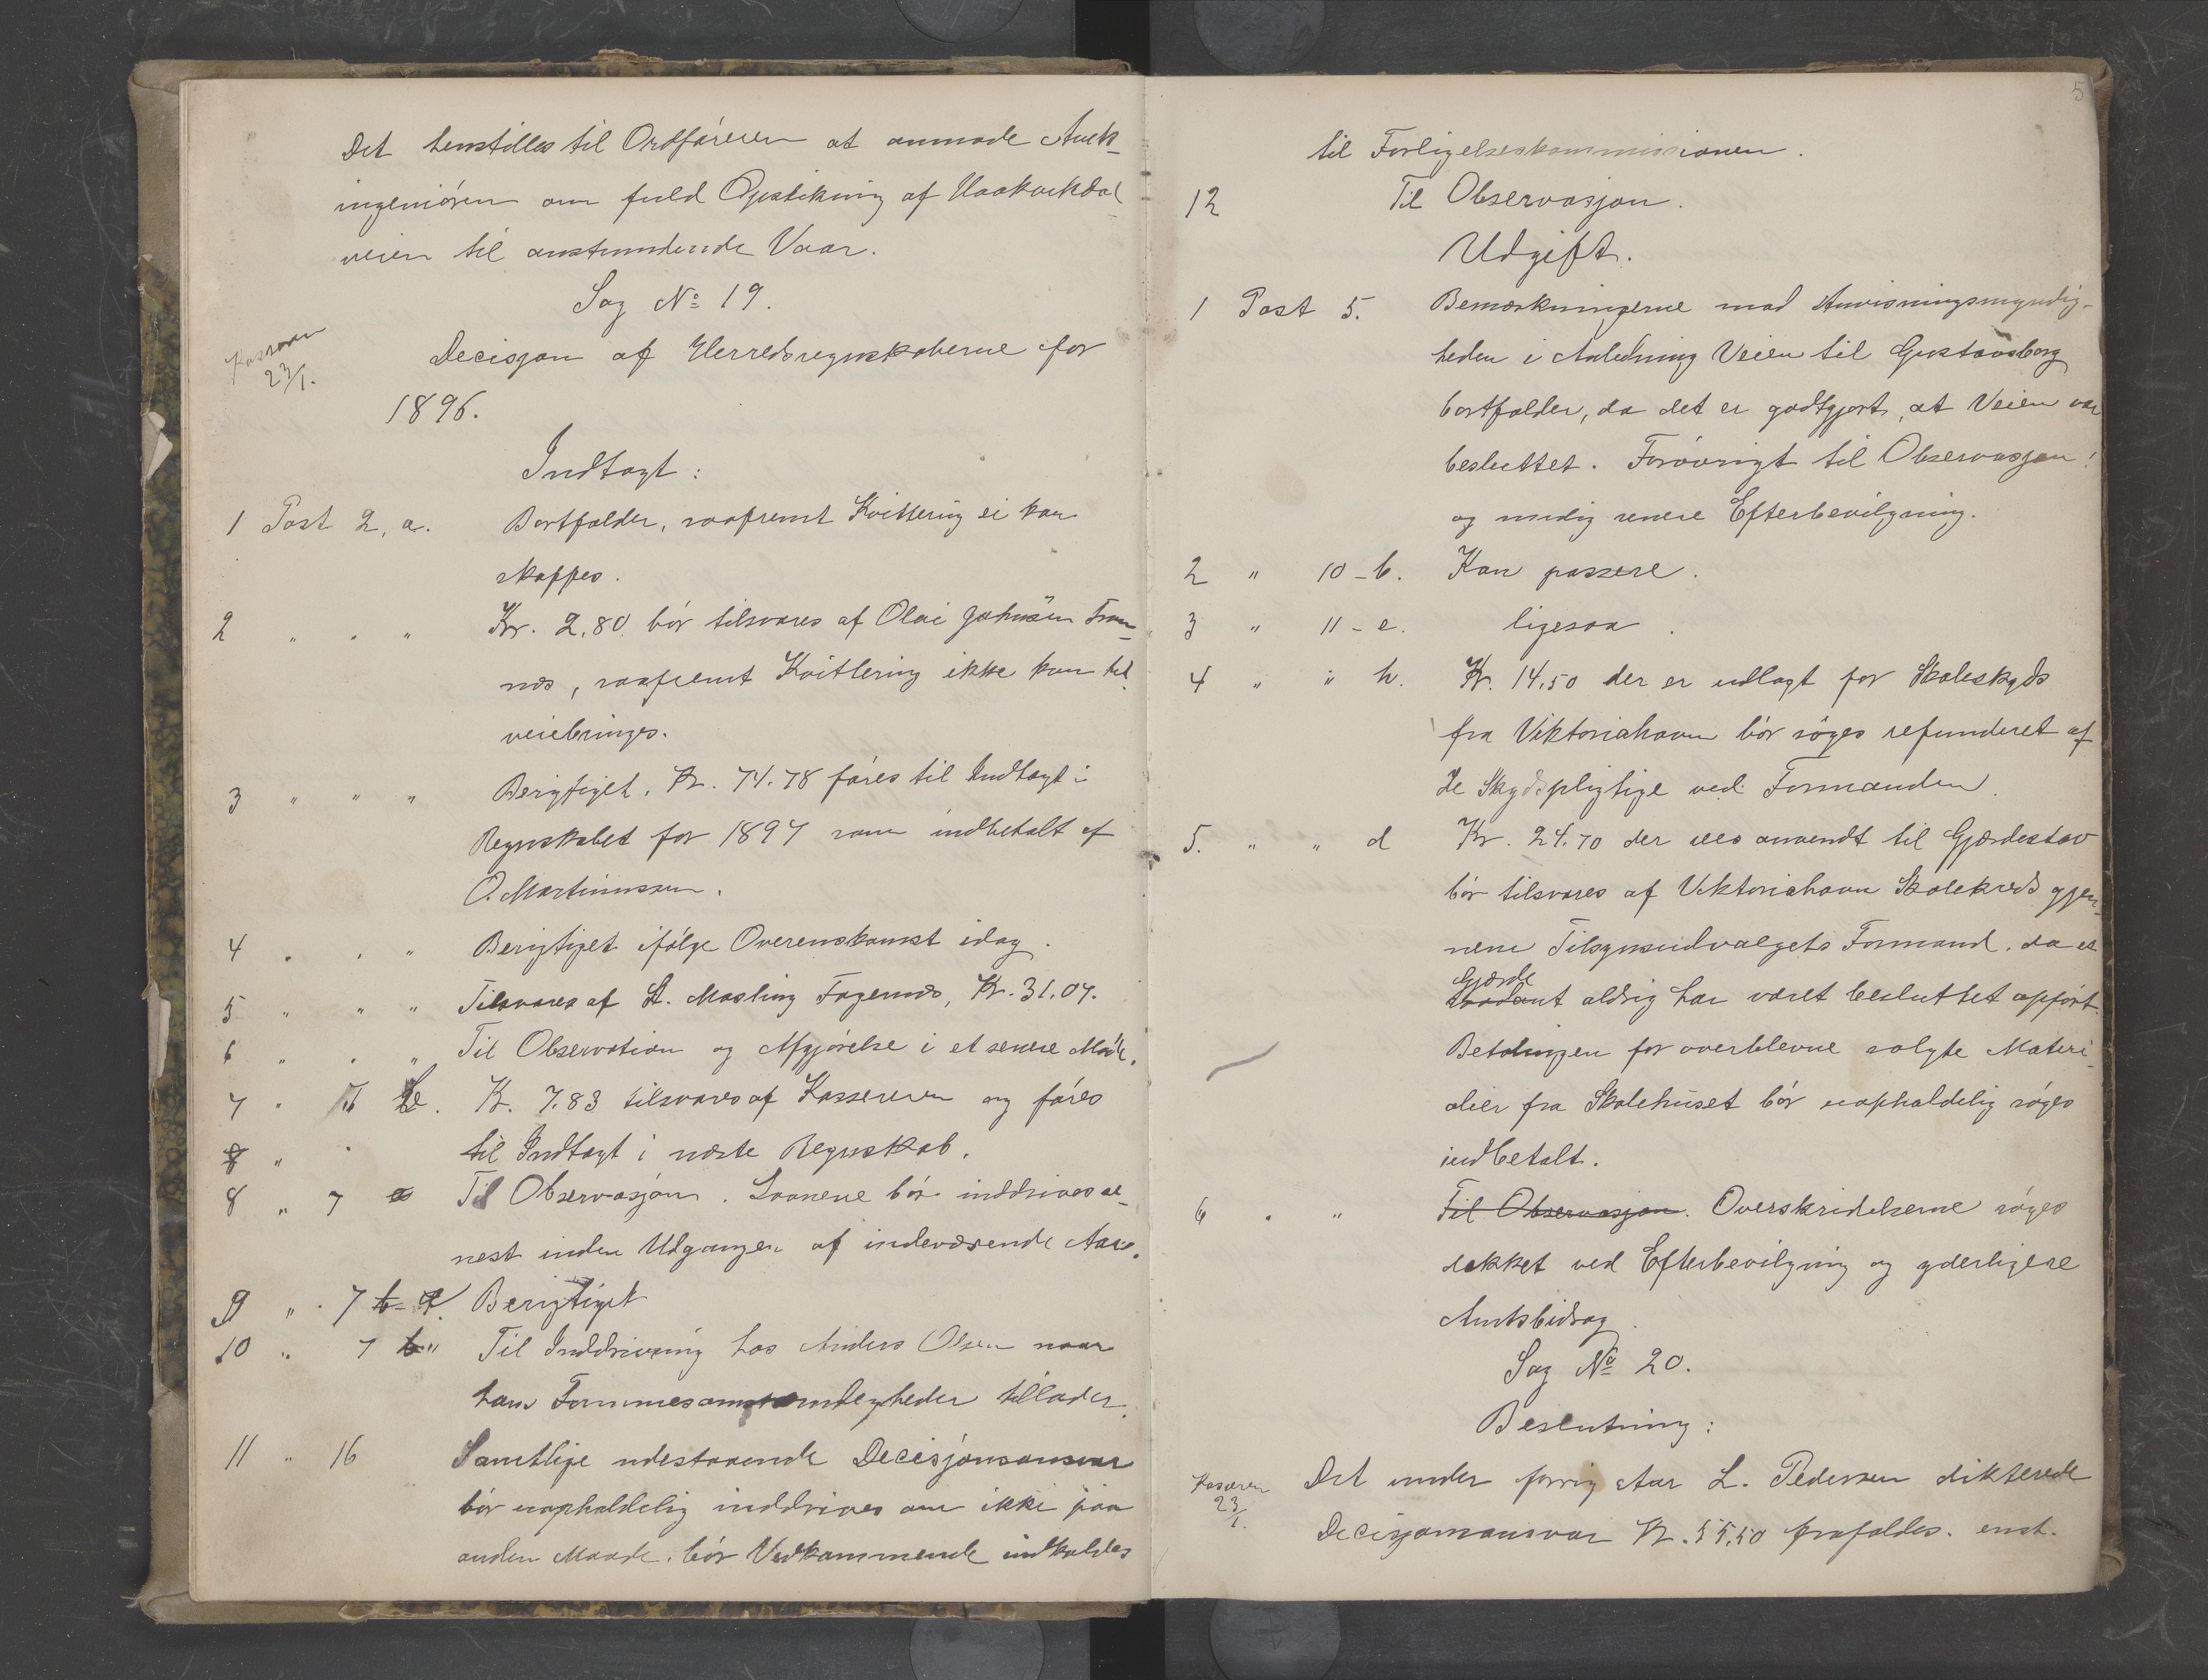 Det henstilles til Ordføreren at anmode Amts-
ingeniøren om fuld Opstikning af Haakvikdal
veien til anstundende Vaar.
Sag No 19.
Kasseren
23/1.
Decisjon af Herredsregnskaberne for
1896.
Indtægt:
1 Post 2, a. Bortfalder, saafremt Kvittering ei kan
skaffes.
2 " " " Kr. 2,80 bør tilsvares af Olai Johnsen From-
nes, saafremt Kvittering ikke kan til
veiebringes.
3 " " " Berigtiget. Kr. 74.78 føres til Indtægt i
Regnskabet for 1897 som indbetalt af
O. Martinussen.
4 " " " Berigtiget ifølge Overenskomst idag.
5 " " " Tilsvares af A. Mosling Fagernæs, Kr. 31.07.
6 " " " Til Observation og Afgjørelse i et senere Møde.
7 " Kr. 7.83 tilsvares af Kassereren og føres
8 " " til Indtægt i næste Regnskab.
8 " 7 a Til Observasjon. Laanene bør inddrives se-
nest inden Udgangen af indeværende Aar.
9 " 7 b Berigtiget
10 " 7 b " Til Inddrivning hos Anders Olsen naar
hans Formuesomstændigheder tillader.
11 " 16 Samtlige udestaaende Decisjonsansvar
bør uopholdelig inddrives om ikke paa
anden Maade, bør Vedkommende indkaldes
5
til Forligelseskommissionen.
12 Til Observasjon.
Udgift.
1 Post 5. Bemærkningerne mod Anvisningsmyndig-
heden i Anledning Veien til Gustavsborg
bortfalder, da det er godtgjort, at Veien var
besluttet. Forøvrigt til Observasjon!
og mulig senere Efterbevilgning.
2 " 10 - b. Kan passere.
3 " 11 - e. ligesaa.
4 " " h. Kr. 14,50 der er udlagt for Skoleskyds
fra Viktoriahavn bør søges refunderet af
de Skydspligtige ved Formanden.
5. " " d Kr. 24.70 der sees anvendt til Gjærdestav
bør tilsvares af Viktoriahavn Skolekreds gjen-
nem Tilsynsudvalgets Formand, da et
Gjærde
saadant aldrig har været besluttet opført.
Betalingen for overblevne solgte Materi-
alier fra Skolehuset bør uopholdelig søges
indbetalt.
6 " " Til Observasjon. Overskridelserne søges
dækket ved Efterbevilgning og yderligere
Amtsbidrag.
Sag No 20.
Beslutning:
Kasseren
23/1.
Det under forrig Aar L. Pedersen dikterede
Decisjonsansvar Kr. 55,50 frafaldes. enst.